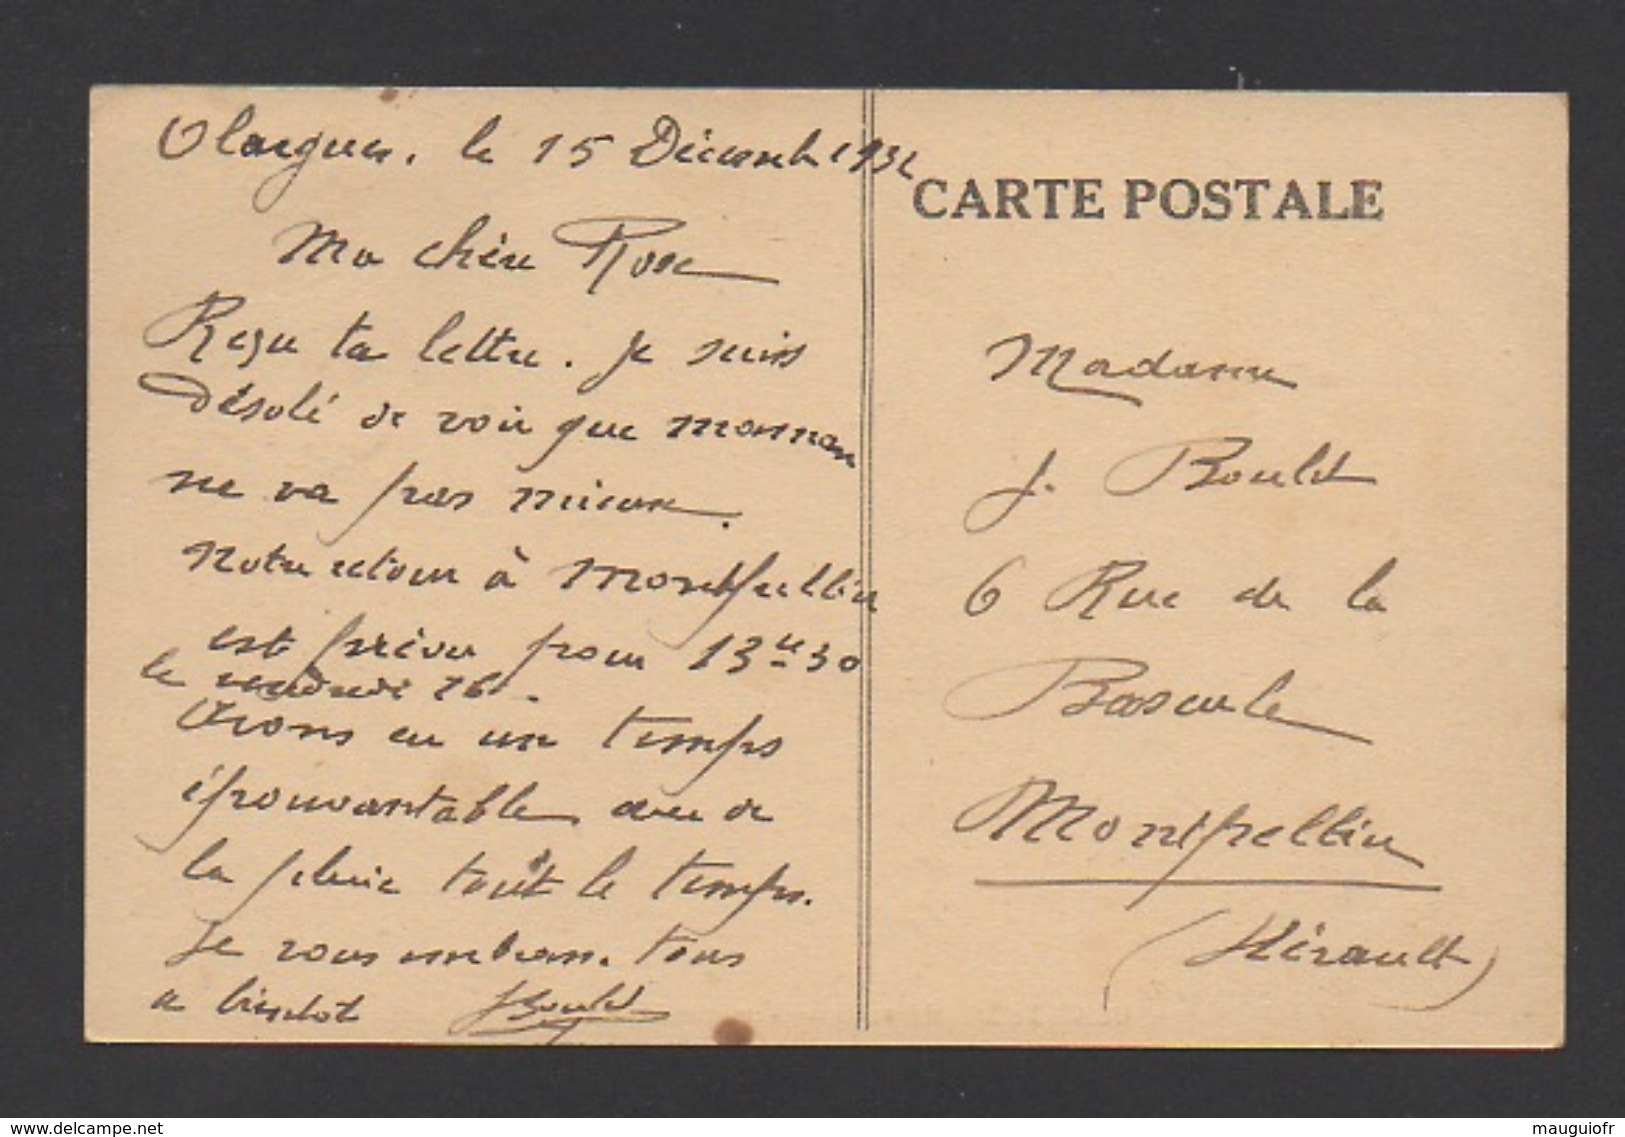 Olargues, le 15 Décembre 1932
Ma chère Rose
Reçu ta lettre. Je suis
Désolé de voir que maman
ne va pas mieux.
Notre retour à Montpellier
est prévu pour 13 30
le vendredi 16.
Avons eu un temps
épouvantable avec de
la pluie tout le temps.
Je vous embrasse tous
a bientot JBoulet
CARTE POSTALE
Madame
J. Boulet
6 Rue de la
Bascule
Montpellier
(Hérault)
www.delcampe.net
mauguiofr